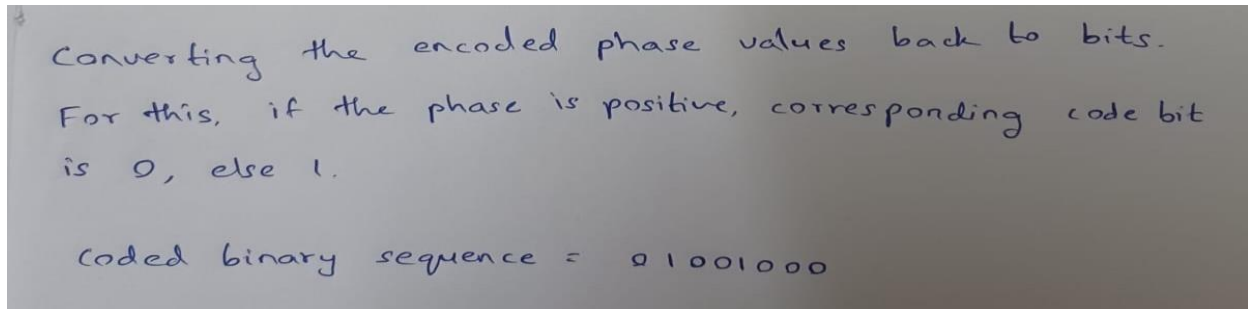 Converting the encoded phase values back to bits.
For this, if the phase is positive, corresponding code bit
is 0, else 1.
Coded binary sequence = 01001000